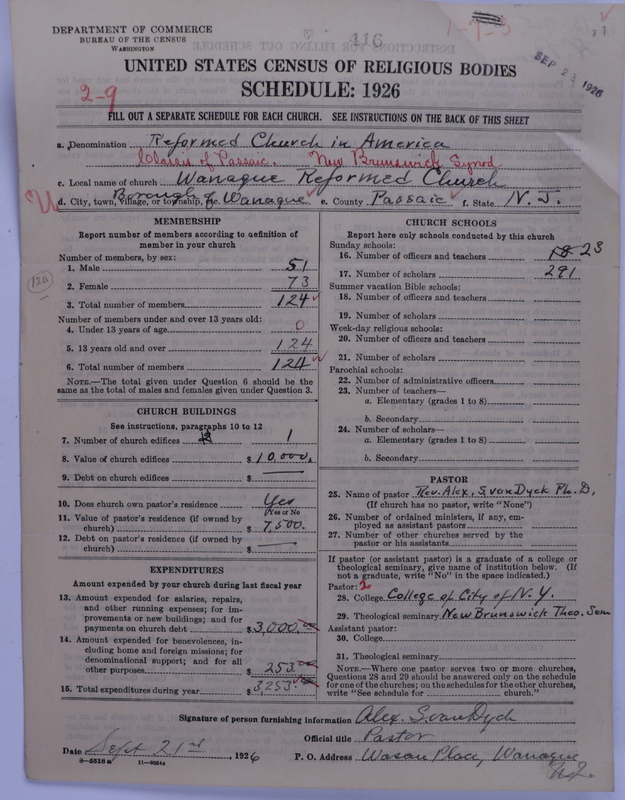 DEPARTMENT OF COMMERCE
BUREAU OF THE CENSUS
WASHINGTON
416
1-7-3
SEP 23 1926
UNITED STATES CENSUS OF RELIGIOUS BODIES
SCHEDULE: 1926
2-9
FILL OUT A SEPARATE SCHEDULE FOR EACH CHURCH. SEE INSTRUCTIONS ON THE BACK OF THIS SHEET
a. Denomination Reformed Church in America
Classis of Passaic. New Brunswick Synod
c. Local name of church Wanaque Reformed Church
d. City, town, village, or township, etc. Borough of Wanaque e. County Passaic f. State N. J.
MEMBERSHIP
Report number of members according to definition of
member in your church
Number of members, by sex:
1. Male 51
2. Female 73
3. Total number of members 124
Number of members under and over 13 years old:
4. Under 13 years of age 0
5. 13 years old and over 124
6. Total number of members 124
NOTE.—The total given under Question 6 should be
same as the total of males and females given under Question 3.
CHURCH BUILDINGS
See instructions, paragraphs 10 to 12
7. Number of church edifices 1
8. Value of church edifices $10,000.
9. Debt on church edifices $ —
10. Does church own pastor's residence Yes
Yes or No
11. Value of pastor's residence (if owned by
church) $ 7,500.
12. Debt on pastor's residence (if owned by
church) $ —
EXPENDITURES
Amount expended by your church during last fiscal year
13. Amount expended for salaries, repairs,
and other running expenses; for im-
provements or new buildings; and for
payments on church debt $3,000.
14. Amount expended for benevolences, in-
cluding home and foreign missions; for
denominational support; and for all
other purposes $ 253.
15. Total expenditures during year $3,253.
CHURCH SCHOOLS
Report here only schools conducted by this church
Sunday schools:
16. Number of officers and teachers 18 23
17. Number of scholars 291
Summer vacation Bible schools:
18. Number of officers and teachers
19. Number of scholars
Week-day religious schools:
20. Number of officers and teachers
21. Number of scholars
Parochial schools:
22. Number of administrative officers
23. Number of teachers—
a. Elementary (grades 1 to 8)
b. Secondary
24. Number of scholars—
a. Elementary (grades 1 to 8)
b. Secondary
PASTOR
25. Name of pastor Rev. Alex. S. van Dyck Ph. D.
(If church has no pastor, write "None")
26. Number of ordained ministers, if any, em-
ployed as assistant pastors
27. Number of other churches served by the
pastor or his assistants
If pastor (or assistant pastor) is a graduate of a college or
theological seminary, give name of institution below. (If
not a graduate, write "No" in the space indicated.)
Pastor: 2
28. College College of City of N. Y.
29. Theological seminary New Brunswick Theo. Sem
Assistant pastor:
30. College
31. Theological seminary
NOTE.—Where one pastor serves two or more churches,
Questions 28 and 29 should be answered only on the schedule
for one of the churches; on the schedules for the other churches,
write "See schedule for church."
Signature of person furnishing information Alex. S. van Dyck
Official title Pastor
Date Sept 21st, 1926 P. O. Address Place, Wanaque
N. J.
8—5518a 11—9054a